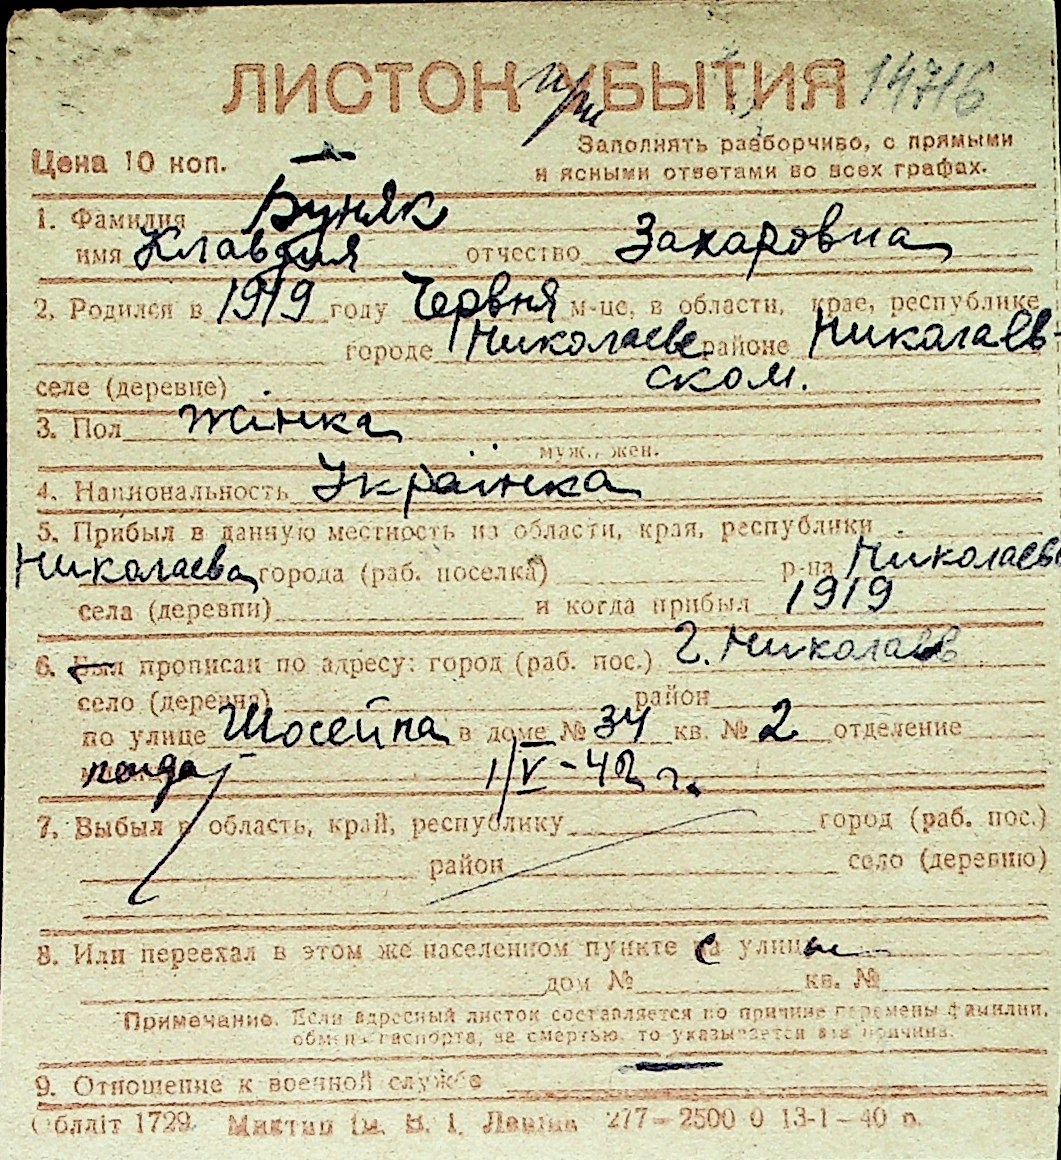 ЛИСТОК при УБЫТИЯ 14716
Цена 10 коп.
Заполнять разборчиво, с прямыми
и ясными ответами во всех графах.
1. Фамилия Буняк
имя Клавдия отчество Захаровна
2. Родился в 1919 году Червня м-це, в области, крае, республике
городе Николаеве районе Николаев-
селе (деревне) ском.
3. Пол жінка
муж., жен.
4. Национальность Українка
5. Прибыл в данную местность из области, края, республики
Николаева города (раб. поселка) р-на Николаев
села (деревни) и когда прибыл 1919
6. Был прописан по адресу: город (раб. пос.) г. Николаев
село (деревня) район
по улице Шосейна в доме № 34 кв. № 2 отделение
1/V-42 г.
7. Выбыл в область, край, республику город (раб. пос.)
район село (деревню)
8. Или переехал в этом же населенном пункте с улицы
дом № кв. №
Примечание. Если адресный листок составляется по причине перемены фамилии,
обмена паспорта, за смертью, то указывается эта причина.
9. Отношение к военной службе
Облліт 1729. Миктип ім. В. І. Леніна 277—2500 0 13-1-40 р.